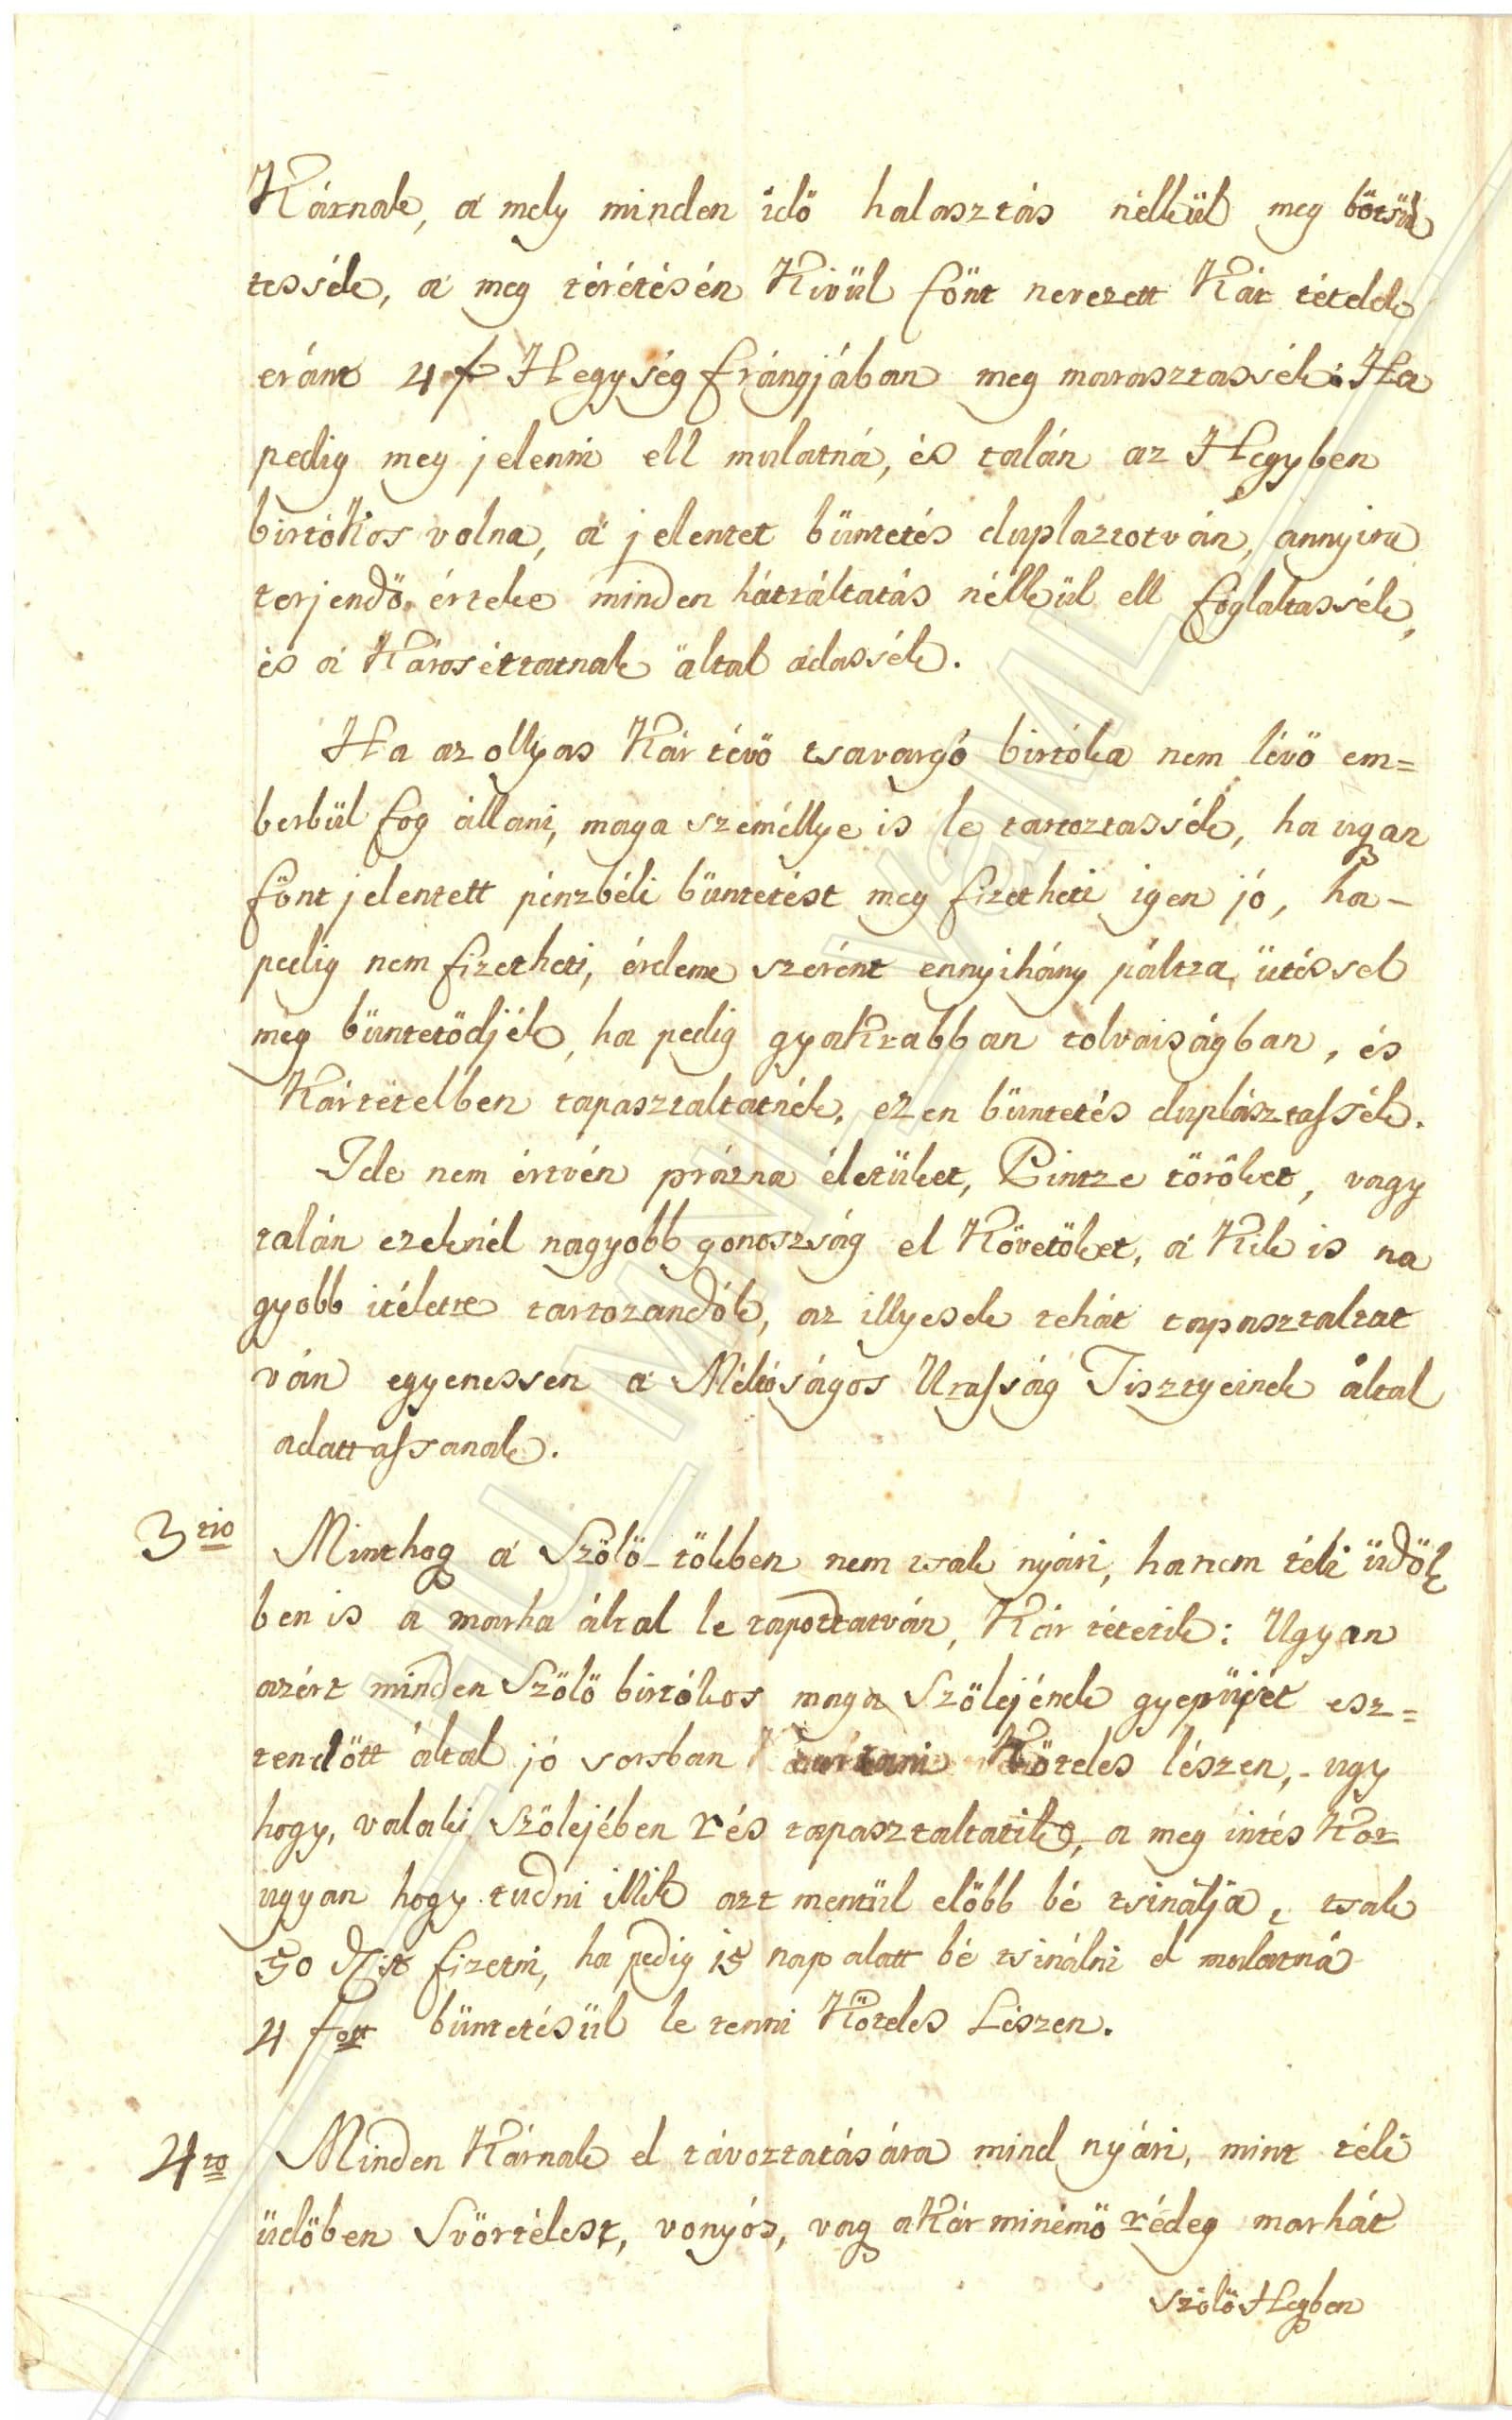 Kárnak, a' mely minden üdö halasztás nélkül meg bötsül
tessék, a' meg térétésén Kivül fönt nevezett Kár tételek
eránt 4 f Hegység frángjában meg marasztassék: Ha
pedig meg jelenni ell mulatná, és talán az Hegyben
birtokos volna, a' jelentet büntetés duplaztotván, annyira
terjendö értéke minden hátráltatás nélkül ell foglaltassék,
és a' Károséttatnak által adassék.
Ha az ollyas Kár tévö tsavargó birtóka nem lévö em=
berbül fog állani, maga személlye is le tartoztassék, ha ugan
fönt jelentett pénzbéli büntetést meg fizetheti igen jó, ha-
pedig nem fizetheti, érdeme szerént ennyihány páltza ütéssel
meg büntetödjék, ha pedig gyakrabban tolvaiságban, és
Kártételben tapasztaltatnék, ezen büntetés duplásztassék.
Ide nem értvén prázna életüket, Pintze töröket, vagy
talán ezeknél nagyobb gonoszság el Követöket, a' Kik is na
gyobb itéletre tartozandók, az illyesek tehát tapasztaltat
ván egyenessen a' Méltóságos Urasság Tisztyeinek által
adattassanak.
3tio Minthog a' Szölö-tökben nem tsak nyári, hanem téli üdök
ben is a marha által le tapottatván, Kár tétetik: Ugyan
azért minden Szölö birtókos maga Szölejének gyepüjét esz=
tendött által jó sorsban tartani Köteles lészen,- ugy
hogy, valaki Szölejében rés tapasztaltatik, a meg intés Kor
ugyan hogy tudni illik azt mentül elöbb bé tsinálja, tsak
50 dxit fizetni, ha pedig 15 nap alatt bé tsinálni el mulatná
4 fott büntetésül le tenni Köteles Lészen.
4to Minden Kárnak el távoztatására mind nyári, mint téli
üdöben Svörtélest, vonyós, vag akár minémö rédeg marhát
szölö Hegben